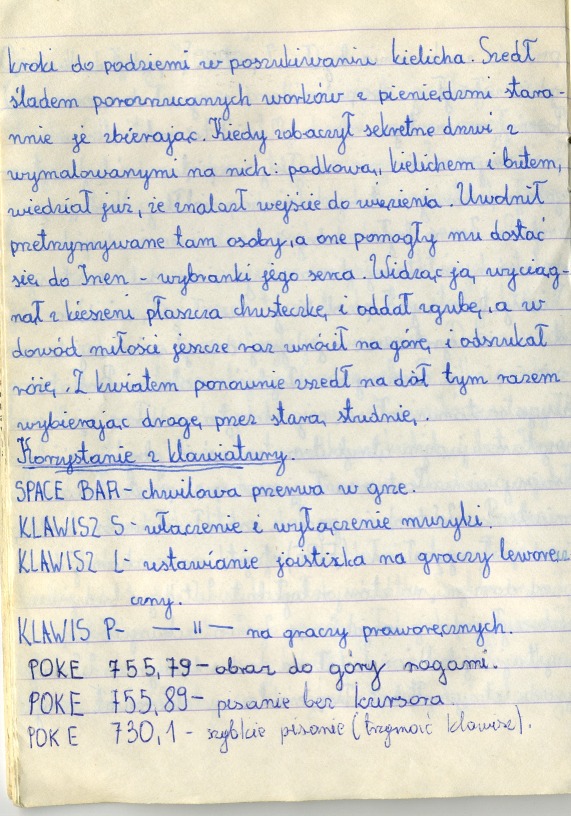 kroki do podziemi w poszukiwaniu kielicha. Szedł
śladem porozrzucanych worków z pieniędzmi stara-
nnie je zbierając. Kiedy zobaczył sekretne drzwi z
wymalowanymi na nich: podkową, kielichem i butem,
wiedział już, że znalazł wejście do więzienia. Uwolnił
przetrzymywane tam osoby, a one pomogły mu dostać
się do Inen - wybranki jego serca. Widząc ją wyciąg-
nął z kieszeni płaszcza chusteczkę i oddał zgubę, a w
dowód miłości jeszcze raz wrócił na górę i odszukał
różę. Z kwiatem ponownie zszedł na dół tym razem
wybierając drogę przez starą studnię.
Korzystanie z klawiatury.
SPACE BAR - chwilowa przerwa w grze.
KLAWISZ S - włączenie i wyłączenie muzyki.
KLAWISZ L - ustawianie joistika na graczy leworę-
czny.
KLAWIS P - — 11 — na graczy praworęcznych.
POKE 755,79 - obraz do góry nogami.
POKE 755,89 - pisanie bez kursora.
POKE 730,1 - szybkie pisanie (trzymać klawisz).